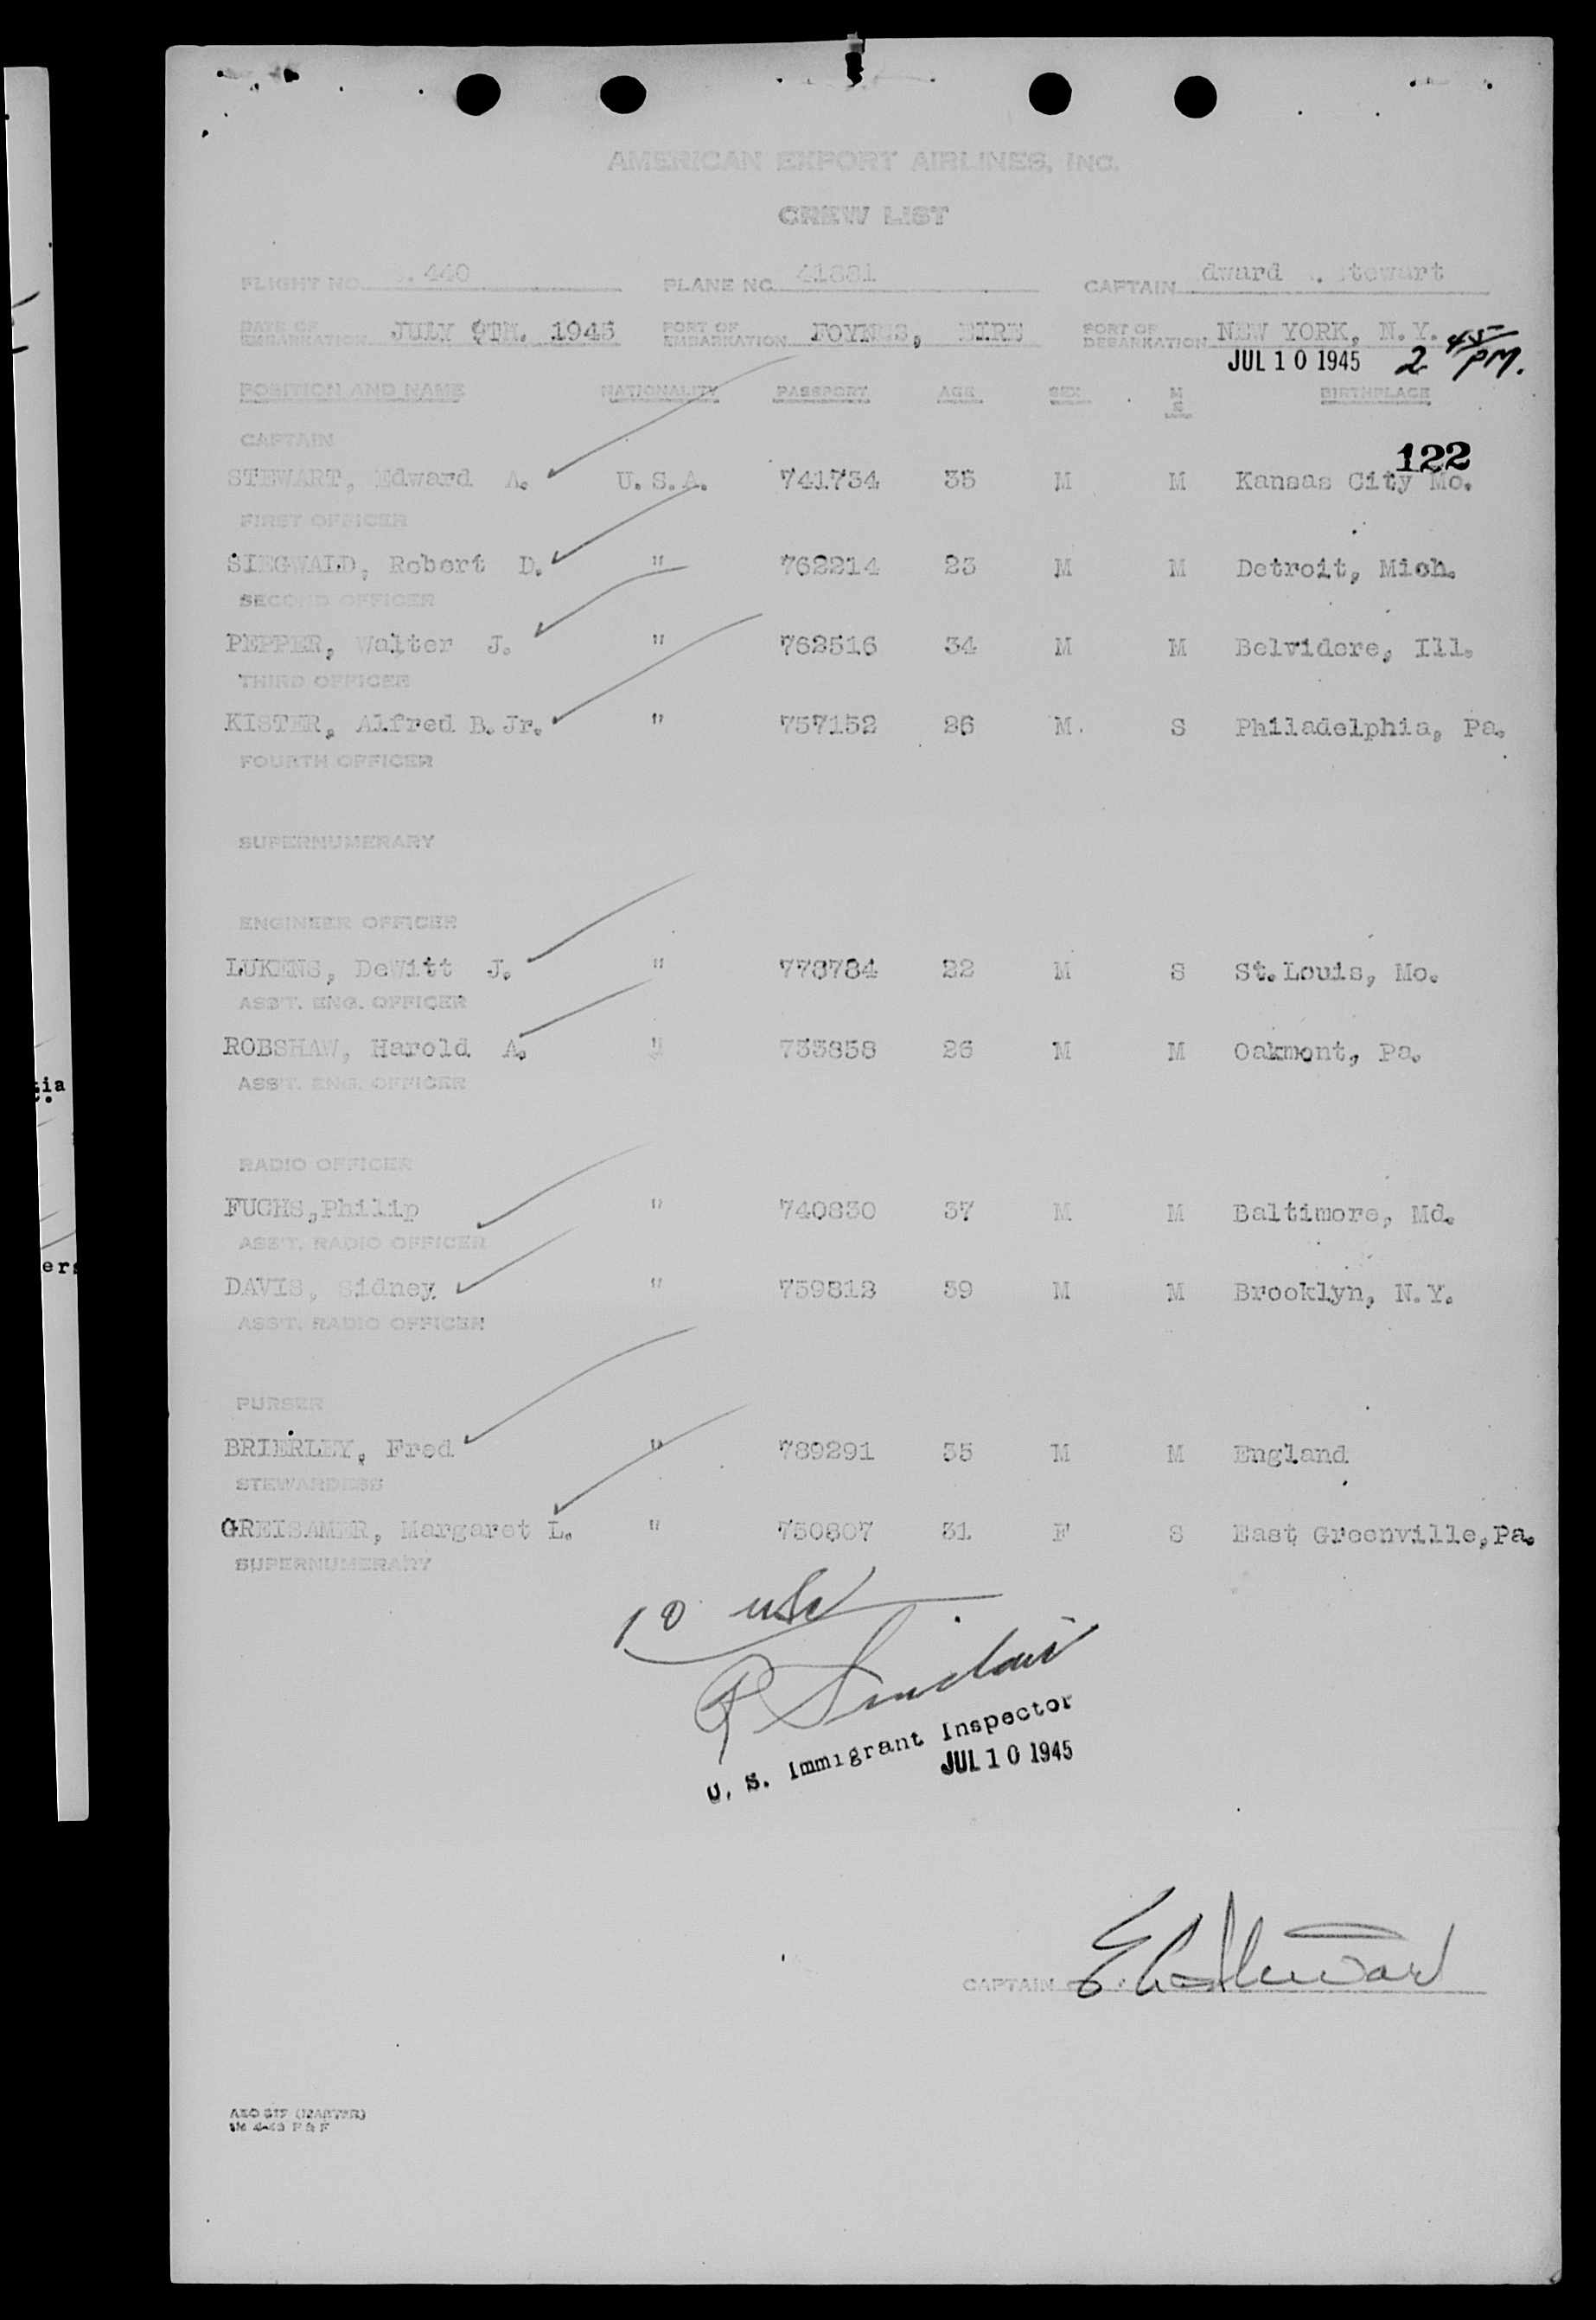 AMERICAN EXPORT AIRLINES, INC.
CREW LIST
FLIGHT NO. 440 PLANE NO. 41881 CAPTAIN dward . tewart
DATE OF EMBARKATION JULY 9TH. 1945 PORT OF EMBARKATION FOYNES, EIRE PORT OF DEBARKATION NEW YORK, N.Y.
JUL 10 1945 2 45 PM.
POSITION AND NAME NATIONALITY PASSPORT AGE SEX M S BIRTHPLACE
122
CAPTAIN
STEWART, Edward A. U.S.A. 741734 35 M M Kansas City Mo.
FIRST OFFICER
SIEGWALD, Robert D. " 762214 23 M M Detroit, Mich.
SECOND OFFICER
PEPPER, Walter J. " 762516 34 M M Belvidere, Ill.
THIRD OFFICER
KISTER, Alfred B. Jr. " 757152 26 M. S Philadelphia, Pa.
FOURTH OFFICER
SUPERNUMERARY
ENGINEER OFFICER
LUKENS, DeWitt J. " 778784 22 M S St.Louis, Mo.
ASS'T. ENG. OFFICER
ROBSHAW, Harold A. " 733858 26 M M Oakmont, Pa.
ASS'T. ENG. OFFICER
RADIO OFFICER
FUCHS,Philip " 740830 37 M M Baltimore, Md.
ASS'T. RADIO OFFICER
DAVIS, Sidney " 759812 39 M M Brooklyn, N.Y.
ASS'T. RADIO OFFICER
PURSER
BRIERLEY, Fred " 789291 35 M M England
STEWARDESS
GREISAMER, Margaret L. " 750807 31 F S East Greenville,Pa.
SUPERNUMERARY
10 USC
R Sinclair
U. S. Immigrant Inspector
JUL 10 1945
CAPTAIN E. A. Stewart
tia
ers